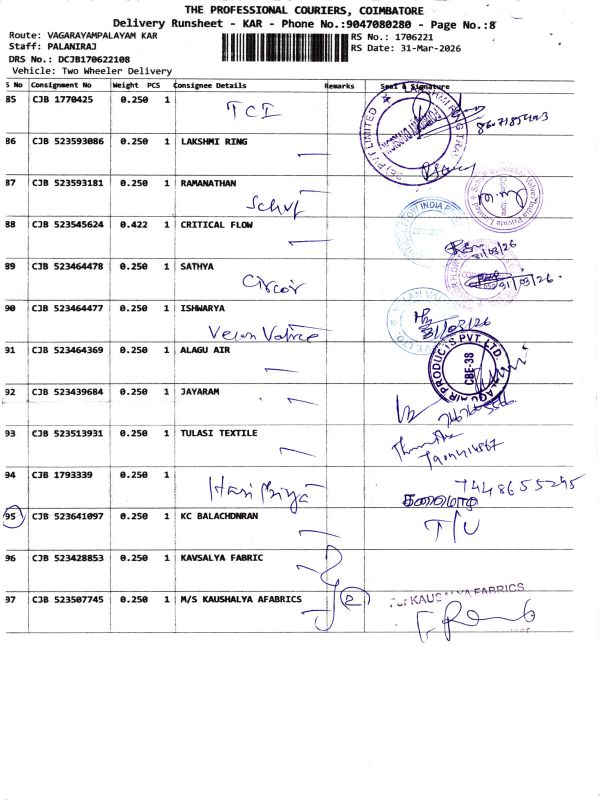 THE PROFESSIONAL COURIERS, COIMBATORE
Delivery Runsheet - KAR - Phone No.:9047080280 - Page No.:8
Route: VAGARAYAMPALAYAM KAR
RS No.: 1706221
Staff: PALANIRAJ
RS Date: 31-Mar-2026
DRS No.: DCJB170622108
Vehicle: Two Wheeler Delivery
S No Consignment No Weight PCS Consignee Details Remarks Seal & Signature
85 CJB 1770425 0.250 1 TCI
86 CJB 523593086 0.250 1 LAKSHMI RING
87 CJB 523593181 0.250 1 RAMANATHAN
88 CJB 523545624 0.422 1 CRITICAL FLOW
31/03/26
89 CJB 523464478 0.250 1 SATHYA
Circor 31/03/26
90 CJB 523464477 0.250 1 ISHWARYA
31/03/26
91 CJB 523464369 0.250 1 ALAGU AIR
PRODUCTS PVT LTD
CBE-38
92 CJB 523439684 0.250 1 JAYARAM
93 CJB 523513931 0.250 1 TULASI TEXTILE
94 CJB 1793339 0.250 1
Hari Priya 7448655295
95 CJB 523641097 0.250 1 KC BALACHDNRAN
T/U
96 CJB 523428853 0.250 1 KAVSALYA FABRIC
97 CJB 523507745 0.250 1 M/S KAUSHALYA AFABRICS 2
For KAUSALYA FABRICS